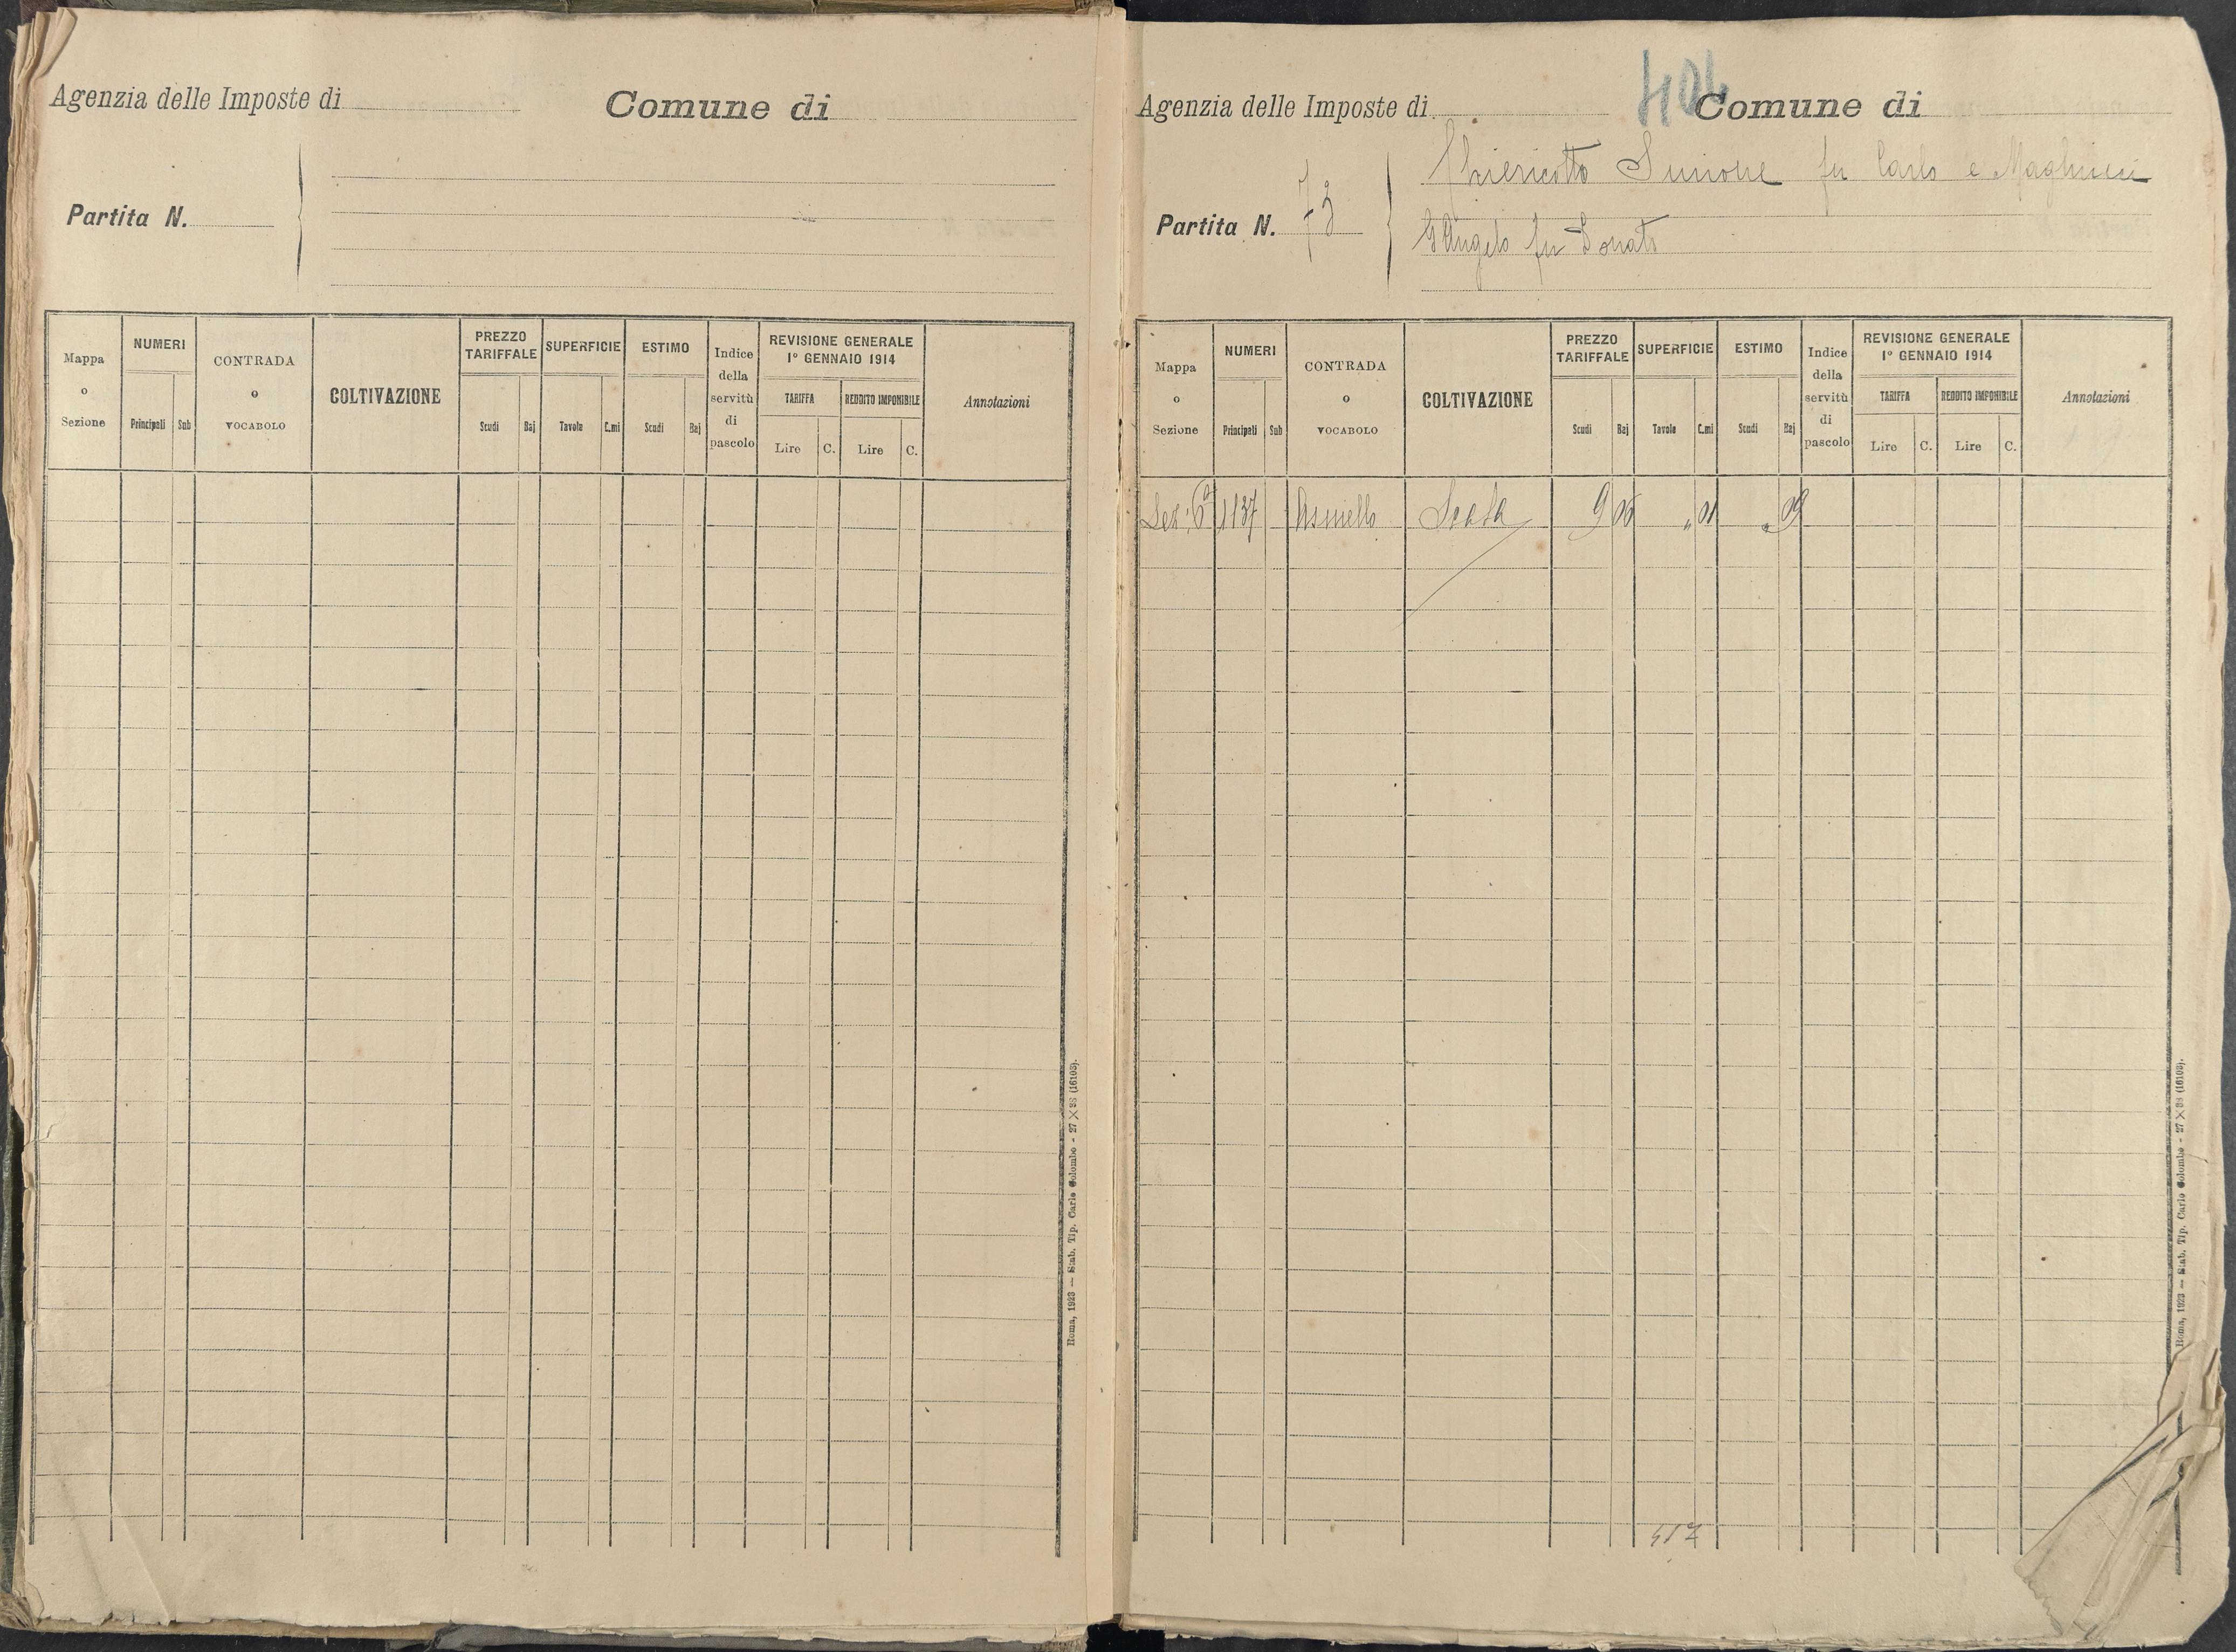 Agenzia delle Imposte di
Comune di
Partita N.
Mappa o Sezione
NUMERI
Principali Sub
CONTRADA o VOCABOLO
COLTIVAZIONE
PREZZO TARIFFALE
Scudi Baj
SUPERFICIE
Tavole C.mi
ESTIMO
Scudi Baj
Indice della servitù di pascolo
REVISIONE GENERALE
1° GENNAIO 1914
TARIFFA
Lire C.
REDDITO IMPONIBILE
Lire C.
Annotazioni
Roma, 1923 — Stab. Tip. Carlo Colombo - 27 X 38 (16103).
404
Agenzia delle Imposte di
Comune di
Partita N. 73
Chiericotto Simone fu Carlo e
D'Angelo fu Donato
Mappa o Sezione
NUMERI
Principali Sub
CONTRADA o VOCABOLO
COLTIVAZIONE
PREZZO TARIFFALE
Scudi Baj
SUPERFICIE
Tavole C.mi
ESTIMO
Scudi Baj
Indice della servitù di pascolo
REVISIONE GENERALE
1° GENNAIO 1914
TARIFFA
Lire C.
REDDITO IMPONIBILE
Lire C.
Annotazioni
Sez: 6ª 1137 „ 01 „ 09
417
Roma, 1923 — Stab. Tip. Carlo Colombo - 27 X 38 (16103).